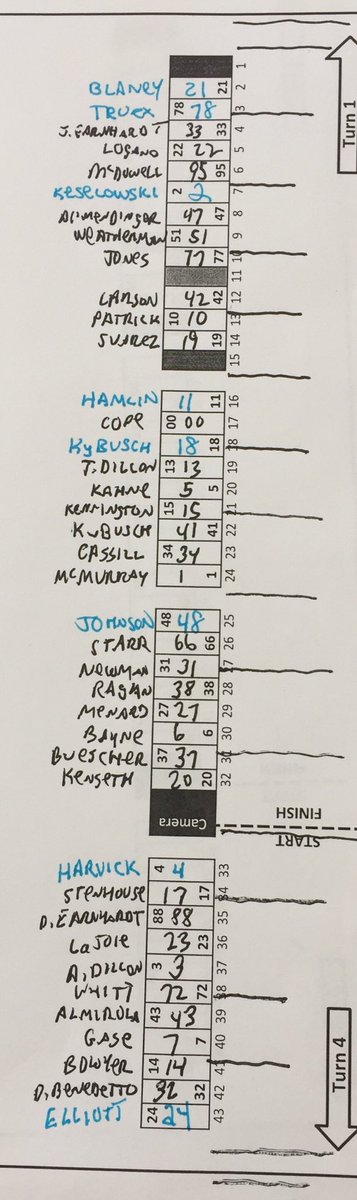 1
BLANEY 21 21 2
TRUEX 78 78 3
J. EARNHARDT 33 33 4
LOGANO 22 22 5
McDOWELL 95 95 6
KESELOWSKI 2 2 7
ALMENDINGER 47 47 8
WEATHERMAN 51 51 9
JONES 77 77 10
11
LARSON 42 42 12
PATRICK 10 10 13
SUAREZ 19 19 14
15
Turn 1
HAMLIN 11 11 16
COPE 00 00 17
KyBUSCH 18 18 18
T. DILLON 13 13 19
KAHNE 5 5 20
KENNINGTON 15 15 21
KuBUSCH 41 41 22
CASSILL 34 34 23
McMURRAY 1 1 24
JOHNSON 48 48 25
STARR 66 66 26
NEWMAN 31 31 27
RAGAN 38 38 28
MENARD 27 27 29
BAYNE 6 6 30
BUESCHER 37 37 31
KENSETH 20 20 32
Camera
FINISH
START
HARVICK 4 4 33
STENHOUSE 17 17 34
D. EARNHARDT 88 88 35
LaJOIE 23 23 36
A. DILLON 3 3 37
WHITT 72 72 38
ALMIROLA 43 43 39
GASE 7 7 40
BOWYER 14 14 41
D. BENEDETTO 32 32 42
ELLIOTT 24 24 43
Turn 4